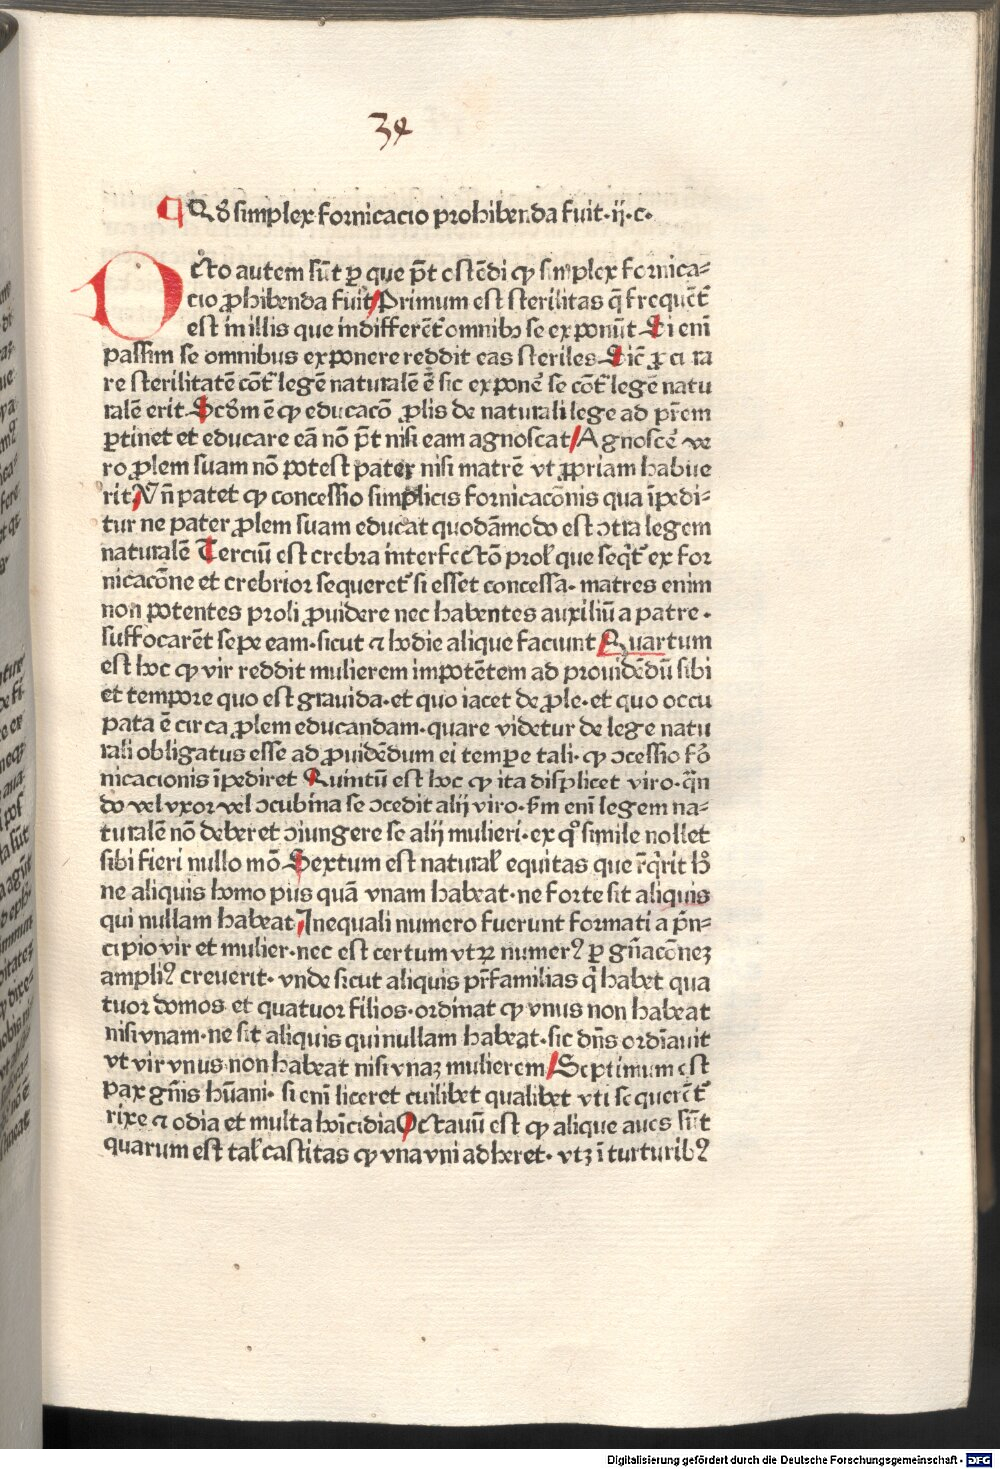 34
¶ Qđ simplex fornicacio prohibenda fuit·ij·c·
Octo autem sūt ꝑ que pn̄t ostēdi ꝙ simplex fornica⸗
cio ꝓhibenda fuit Primum est sterilitas q̄ frequēt᷑
est in illis que indifferēt᷑ omnibꝫ se exponūt Si eni
passim se omnibus exponere reddit eas steriles Sic̄ ꝓcura
re sterilitatē cōt᷑ legē naturalē ē sic exponē se cōt᷑ legē natu
ralē erit Scđm ē ꝙ educacō ꝓlis de naturali lege ad pr̄em
ꝑtinet et educare eā nō pōt nisi eam agnoscat Agnosce᷑ ve
ro ꝓlem suam nō potest pater nisi matrē vt ꝓpriam habue
rit Vn̄ patet ꝙ concessio simplicis fornicacōnis qua īpedi⸗
tur ne pater ꝓlem suam educat quodāmodo est ↄtra legem
naturalē Terciū est crebra interfectō prol᷑ que seqt᷑ ex for
nicacōne et crebrior sequeret᷑ si esset concessa· matres enim
non potentes proli ꝓuidere nec habentes auxiliū a patre·
suffocarēt sepe eam·sicut ⁊ hodie alique faciunt Quartum
est hoc ꝙ vir reddit mulierem impotētem ad prouidēdū sibi
et tempore quo est grauida·et quo iacet de ꝓle·et quo occu
pata ē circa ꝓlem educandam·quare videtur de lege natu
rali obligatus esse ad ꝓuidēdum ei tempe tali·ꝙ ↄcessio fō
nicacionis īpediret Quintū est hoc ꝙ ita displicet viro·qn̄
do vel vxor vel ↄcubina se ↄcedit alij viro·Fm eni legem na⸗
turalē nō deberet ↄiungere se alij mulieri·ex qͦ simile nollet
sibi fieri nullo mō Sextum est natural᷑ equitas que rq̄rit hͦ
ne aliquis homo plus quā vnam habeat·ne forte sit aliquis
qui nullam habeat Inequali numero fuerunt formati a pn̄⸗
cipio vir et mulier·nec est certum vtꝝ numerꝰ ꝑ gn̄acōneꝫ
ampliꝰ creuerit·vnde sicut aliquis pr̄familias q̄ habet qua
tuor domos et quatuor filios·ordinat ꝙ vnus non habeat
nisi vnam·ne sit aliquis qui nullam habeat·sic dn̄s ordīauit
vt vir vnus non habeat nisi vnaꝫ mulierem Septimum est
pax gn̄is hūani·si eni liceret cuilibet qualibet vti sequerēt᷑
rixe ⁊ odia et multa hoīcidia Octauū est ꝙ alique aues sūt
quarum est tal᷑ castitas ꝙ vna vni adheret·vtꝫ ī turturibꝰ
Digitalisierung gefördert durch die Deutsche Forschungsgemeinschaft - DFG